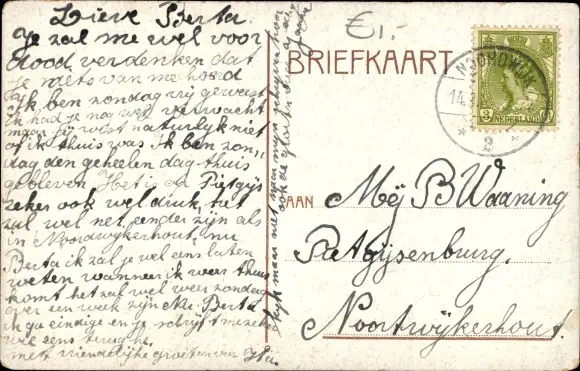 Lieve Berta.
Je zal me wel voor
dood verdenken dat
je niets van me hoord
ik ben zondag vrij geweest
ik had je nog wel verwacht
maar jij wist natuurlyk niet
of ik thuis was. ik ben zon„
dag den geheelen dag thuis
gebleven Het is op Pietgijs
zeker ook wel druk, het
zal wel net eender zijn als
in Noordwykerhout. nu
Berta ik zal je wel eens laten
weten wanneer ik weer thuis
komt het zal wel weer zondag
over een week zijn Nu Berta
ik ga eindige en je schrijft me zeker
wel eens terughe.
met vriendelijke groeten van
kijk maar niet naar mijn
ook de
€1,-
BRIEFKAART
NOORDWIJK
14
2
3
NEDERLAND
AAN
Mej B Waaning
Pietgijsenburg.
Noortwijkerhout.